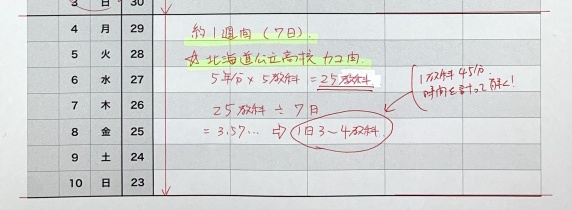 3 日 30
4 月 29
約1週間(7日)
5 火 28
☆北海道公立高校 カコ問
6 水 27
5年分×5教科=25教科
1教科45分
時間を計って解く!
7 木 26
25教科÷7日
8 金 25
=3.57… ⇨ 1日3~4教科
9 土 24
10 日 23